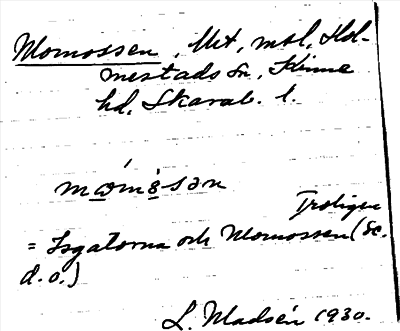 Momossen, Mt, msl, Hol-
mestads sn, Kinne
hd, Skarab. l.
mòmósən
Troligen
= Isgatorna och Momossen (Se.
d. o.)
L. Madsén 1930.